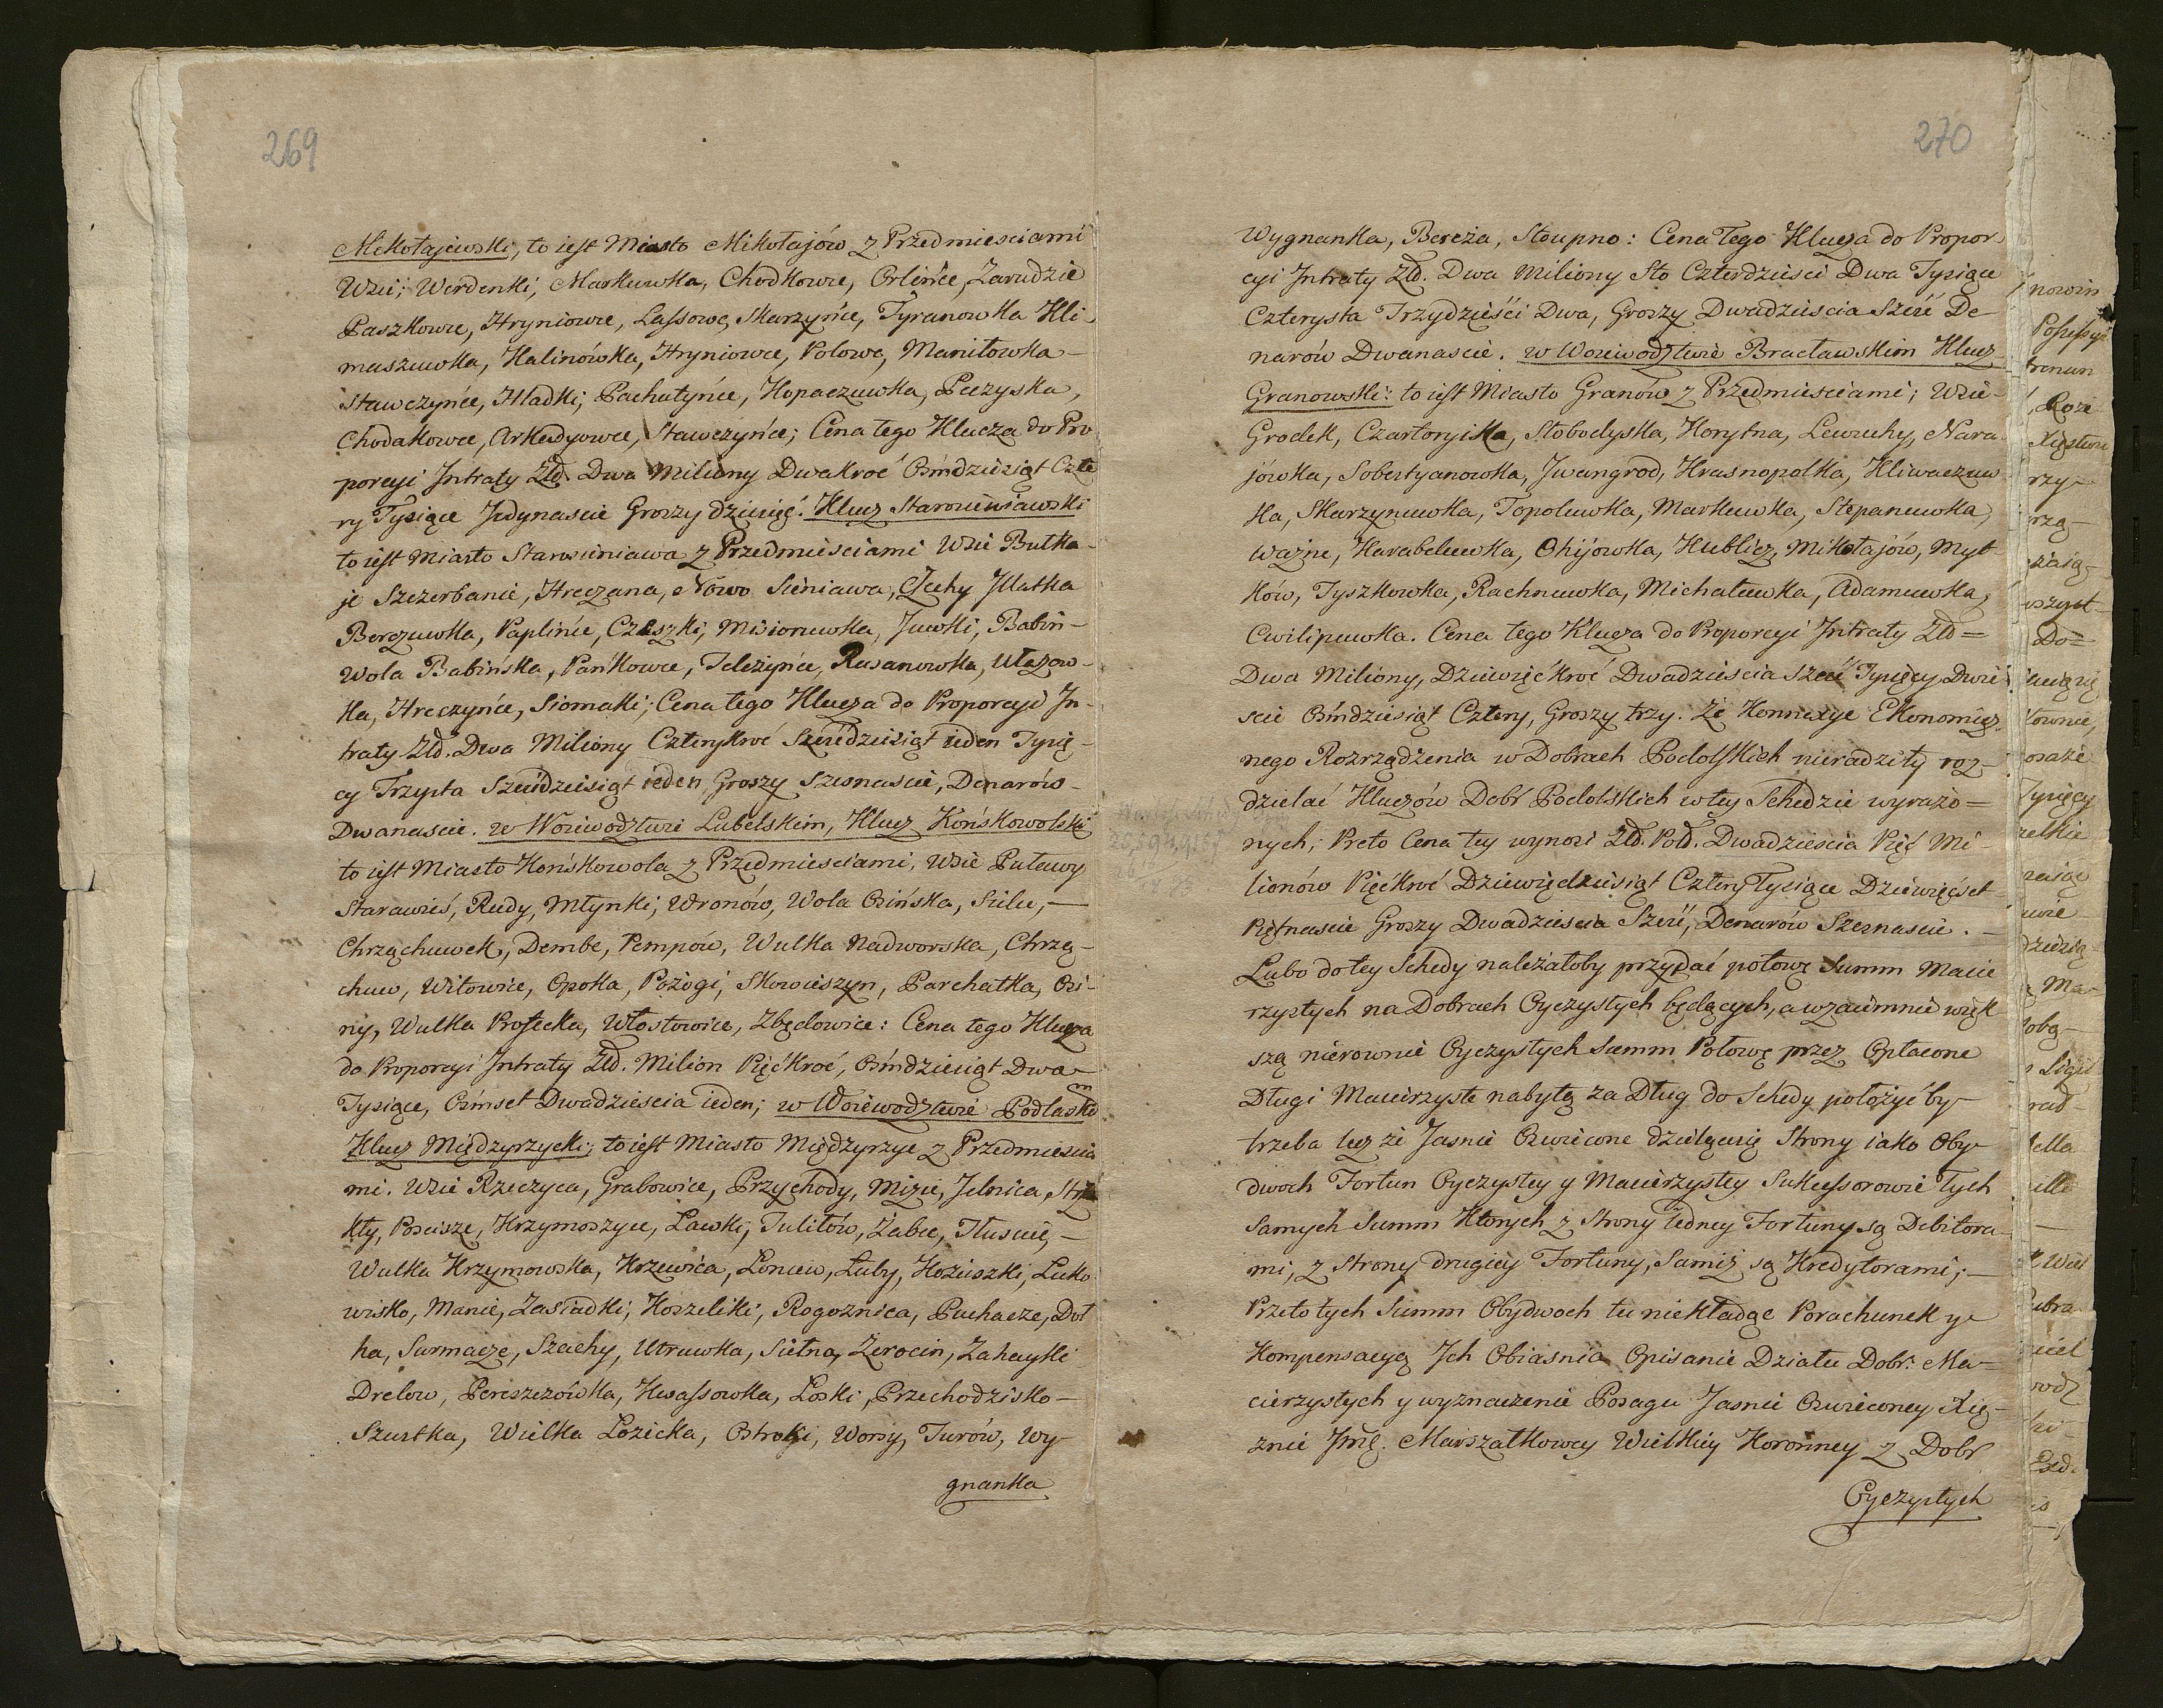 269
Mikołajewski, to iest Miasto Mikołajów z Przedmiesciami
Wsie; Werdenki, Markuwka, Chodkowce, Orlińce, Zarudzie
Paszkowce, Hryniowce, Lassowe, Skarzyńce, Tyranowka Kli-
maszuwka, Kalinówka, Hryniowce, Polowe, Maniłowka -
Stawczyńce, Hladki, Pachutyńce, Kopaczuwka, Peczyska,
Chodakowce, Arkadyowce, Stawczyńce; Cena tego Klucza do Pro
porcyi Intraty Złł. Dwa Miliony Dwakroć Osmdziesiąt Czte
ry Tysiące Jedynascie Groszy dziesięć. Klucz Starosieniawski
to iest Miasto Starosieniawa z Przedmiesciami Wsie Butka-
je Szczerbanie, Hreczana, Nowo Sieniawa, Ilatka
Berczuwka, Paplińce, Czeszki, Misionuwka, Juwki, Babin-
Wola Babińska, Pańkowce, Teleżyńce, Rusanowka, Ułazow-
ka, Hreczyńce, Siomaki; Cena tego Klucza do Proporcyi In-
traty Złł. Dwa Miliony Czterykroć Szesćdziesiąt ieden Tysię-
cy Trzysta Szesćdziesiąt ieden Groszy Szesnascie, Denarów-
Dwanascie. w Woiewodztwie Lubelskim, Klucz Końskowolski
to iest Miasto Końskowola z Przedmiesciami, Wsie Puławy
Starawieś, Rudy, Młynki, Wronów, Wola Osińska, Sielce, -
Chrząchuwek, Dembe, Pempów, Wulka Nadworska, Chrzą-
chuw, Witowice, Opoka, Pożogi, Skowieszyn, Parchatka, Osi-
ny, Wulka Profecka, Włostowice, Zbędowice: Cena tego Klucza
do Proporcyi Intraty Złł. Milion Pięćkroć, Osmdziesiąt Dwa
Tysiące, Osmset Dwadziescia ieden; w Woiewodztwie Podlaskim
Klucz Międzyrzycki, to iest Miasto Międzyrzyc z Przedmiescia
mi. Wsie Rzeczyca, Grabowice, Przychody, Mizie, Jelnica, Strza
kły, Poscisze, Krzymoszyce, Ławki, Tuliłów, Żabce, Tłuscie, -
Wulka Krzymowska, Krzewica, Łoniew, Łuby, Kożuszki, Łuko
wisko, Manie, Zasiadki, Koszeliki, Rogoznica, Puchacze, Doł
ha, Surmacze, Szachy, Utruwka, Sietna, Żerocin, Zahayki
Drelow, Pereszczówka, Kwassowka, Łoski, Przechodzisko -
Szustka, Wielka Łozicka, Ostroki, Worsy, Turów, Wy
gnanka
270
Wygnanka, Bereża, Stoupno: Cena Tego Klucza do Propor
cyi Intraty Złł. Dwa Miliony Sto Czterdziesci Dwa Tysiące
Czterysta Trzydzieści Dwa, Groszy Dwadziescia Sześć De-
narów Dwanascie. w Woiewodztwie Bracławskim Klucz
Granowski: to iest Miasto Granów z Przedmiesciami; Wsie-
Grodek, Czartoryiska, Słobodyska, Korytna, Lewuchy, Nara-
jówka, Sobestyanowka, Jwangrod, Krasnopolka, Kliwaczuw
ka, Skarzynuwka, Topoluwka, Markuwka, Stepanuwka,
Ważne, Karabeluwka, Ohijówka, Kublicz, Mikołajów, Myt
ków, Tyszkowka, Rachnuwka, Michałuwka, Adamuwka,
Cwilipuwka. Cena tego Klucza do Proporcyi Intraty Złł =
Dwa Miliony, Dziewięćkroć Dwadziescia Sześć Tysięcy Dwie
scie Osmdziesiąt Cztery, Groszy trzy. Że Konnexye Ekonomicz
nego Rozrządzenia w Dobrach Podolskich nieradziły roz-
dzielać Kluczów Dobr Podolskich w tey Schedzie wyrażo =
nych; Przeto Cena tey wynosi Złł. Poll. Dwadziescia Pięć Mi-
lionów Pięćkroć Dziewięćdziesiąt Cztery Tysiące Dziewięćset
Piętnascie Groszy Dwadziescia Sześć, Denarów Szesnascie. -
Lubo do tey Schedy należałoby przydać połowę Summ Macie
rzystych na Dobrach Oyczystych będących, a wzaiemnie więk
szą nierownie Oyczystych Summ Połowę przez Opłacone
Długi Macierzyste nabytą za Dług do Schedy położyć by
trzeba lecz że Jasnie Oswiecone dzielącesię Strony iako Oby
dwoch Fortun Oyczystey y Macierzystey Sukcessorowie Tych
Samych Summ Których z Strony iedney Fortuny są Debitora-
mi, z Strony drugiey Fortuny, Samiż są Kredytorami; -
Przeto tych Summ Obydwoch tu niekładąc Porachunek y
Kompensacyą Ich Obiasnia Opisanie Działu Dobr: Ma-
cierzystych y wyznaczenie Posagu Jasnie Oswieconey Xię-
żnie Jmę. Marszałkowey Wielkiey Koronney z Dobr
Oyczystych